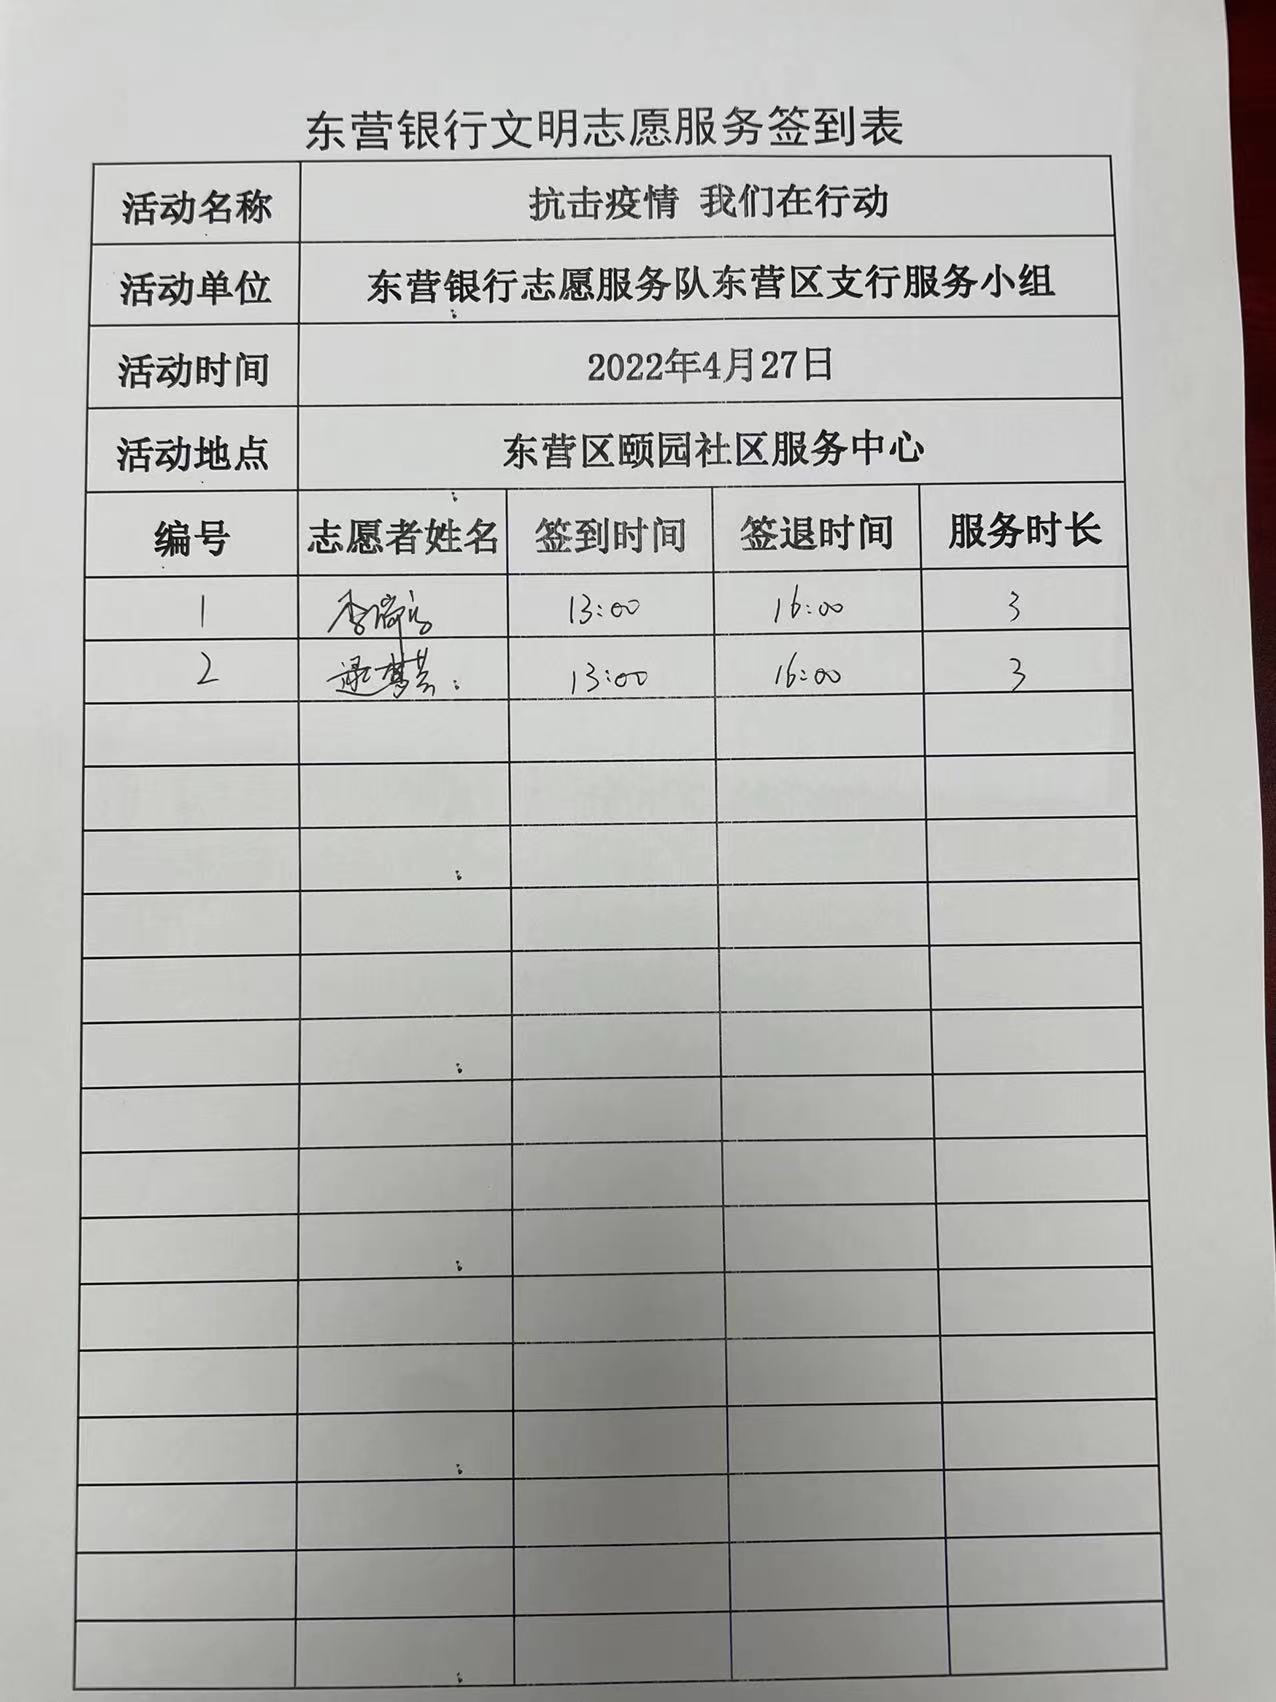 东营银行文明志愿服务签到表
活动名称 抗击疫情 我们在行动
活动单位 东营银行志愿服务队东营区支行服务小组
活动时间 2022年4月27日
活动地点 东营区颐园社区服务中心
编号 志愿者姓名 签到时间 签退时间 服务时长
1 李 13:00 16:00 3
2 13:00 16:00 3